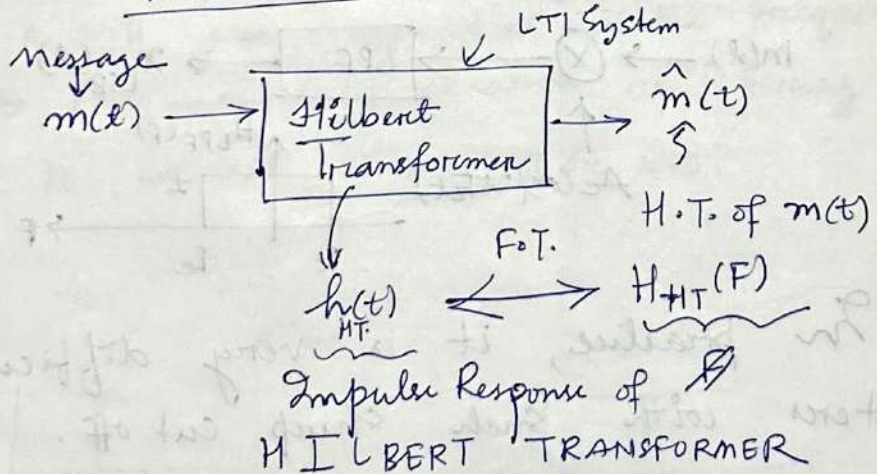 LTI System
Message
m(t) → Hilbert Transformer → m̂(t)
H.T. of m(t)
F.T.
h(t) HT. ⟷ H_HT(F)
Impulse Response of
HILBERT TRANSFORMER